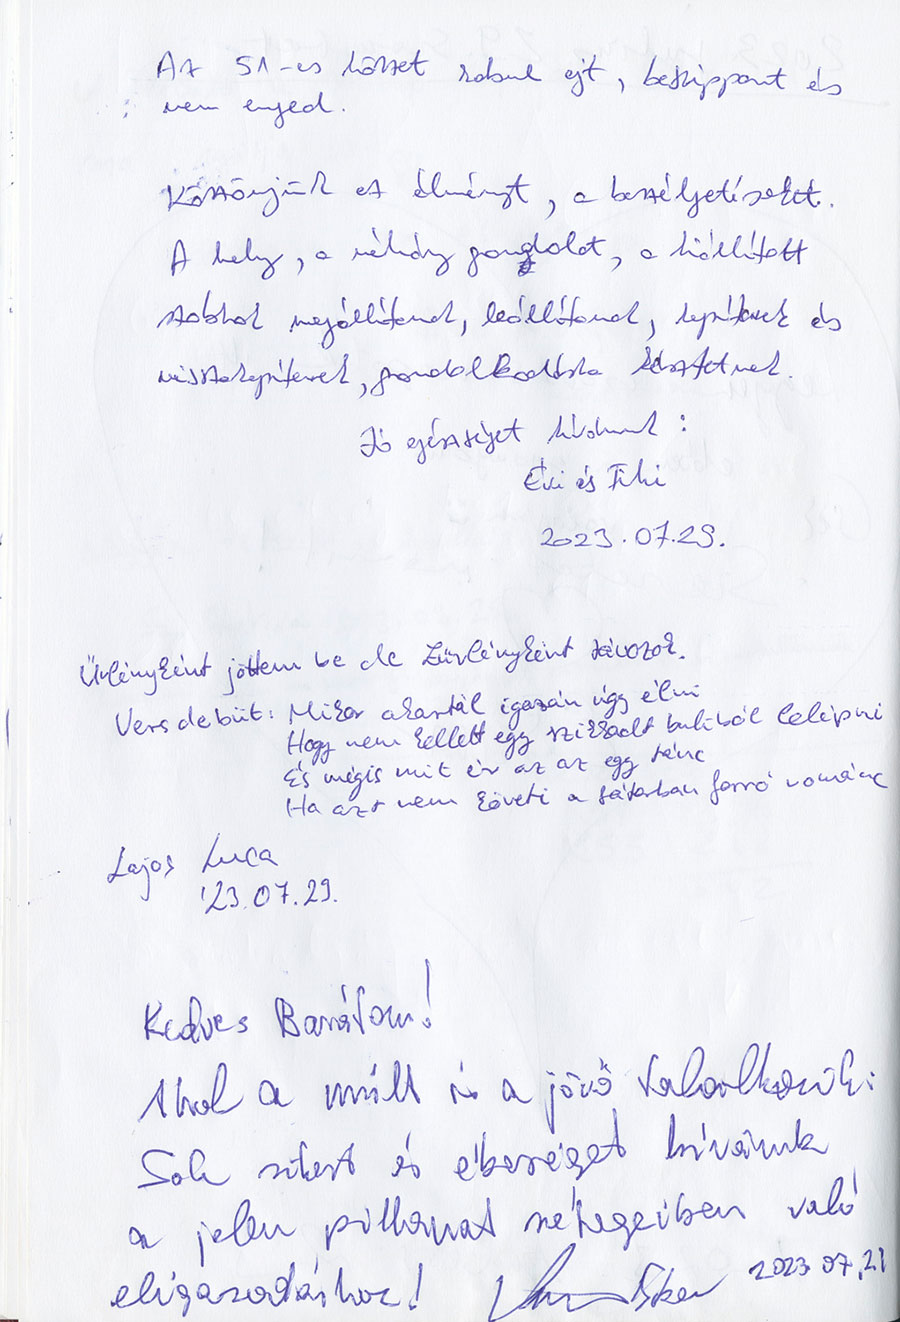 Az 51-es körzet rabul ejt, beszippant és
nem enged.
Köszönjük ez élményt, a beszélgetéseket.
A hely, a néhány gondolat, a kiállított
szobrok megállítanak, leállítanak, repítenek és
visszarepítenek, gondolkodásra késztetnek.
Jó egészséget kívánunk:
Évi és Fiki
2023.07.29.
Űrlényként jöttem be de Zűrlényként távozok.
Vers debüt: Mikor akartál igazán úgy élni
Hogy nem kellett egy szikkadt buliból lelépni
És mégis mit ér az az egy tánc
Ha azt nem követi a sátorban forró románc
Lajos Luca
'23.07.29.
Kedves Barátom!
Ahol a múlt és a jövő találkozik:
Sok sikert és éberséget kívánunk
a jelen pillanat rétegeiben való
eligazodáshoz! 2023 07.21